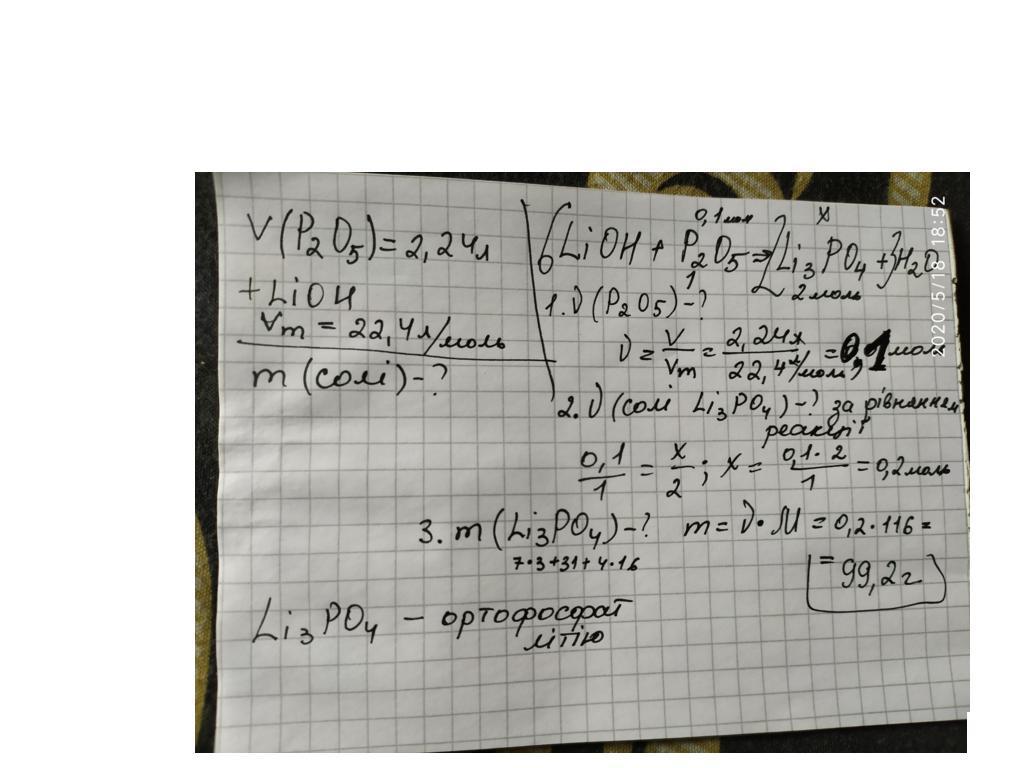 V(P₂O₅)= 2,24л
+LiOH
Vm = 22,4л/моль
m (солі)-?
0,1моль
x
6LiOH + P₂O₅ => 2Li₃PO₄ + 3H₂O
1
2моль
1. ν(P₂O5)-?
ν = V/Vm = 2,24л/22,4л/моль = 0,1моль
2. ν(солі Li₃PO₄)-? за рівнянням
реакції
0,1/1 = x/2; x = 0,1·2/1 = 0,2моль
3. m(Li₃PO₄)-? m = ν·M = 0,2·116 =
7·3+31+4·16
= 99,2г
Li₃PO₄ – ортофосфат
літію
2020/5/18 18:52